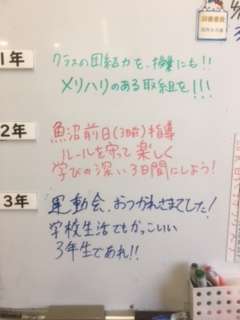 1年
クラスの団結力を、授業にも!!
メリハリのある取組を!!!
2年
魚沼前日(3日前)指導
ルールを守って楽しく
学びの深い3日間にしよう!
3年
運動会、おつかれさまでした!
学校生活でもかっこいい
3年生であれ!!